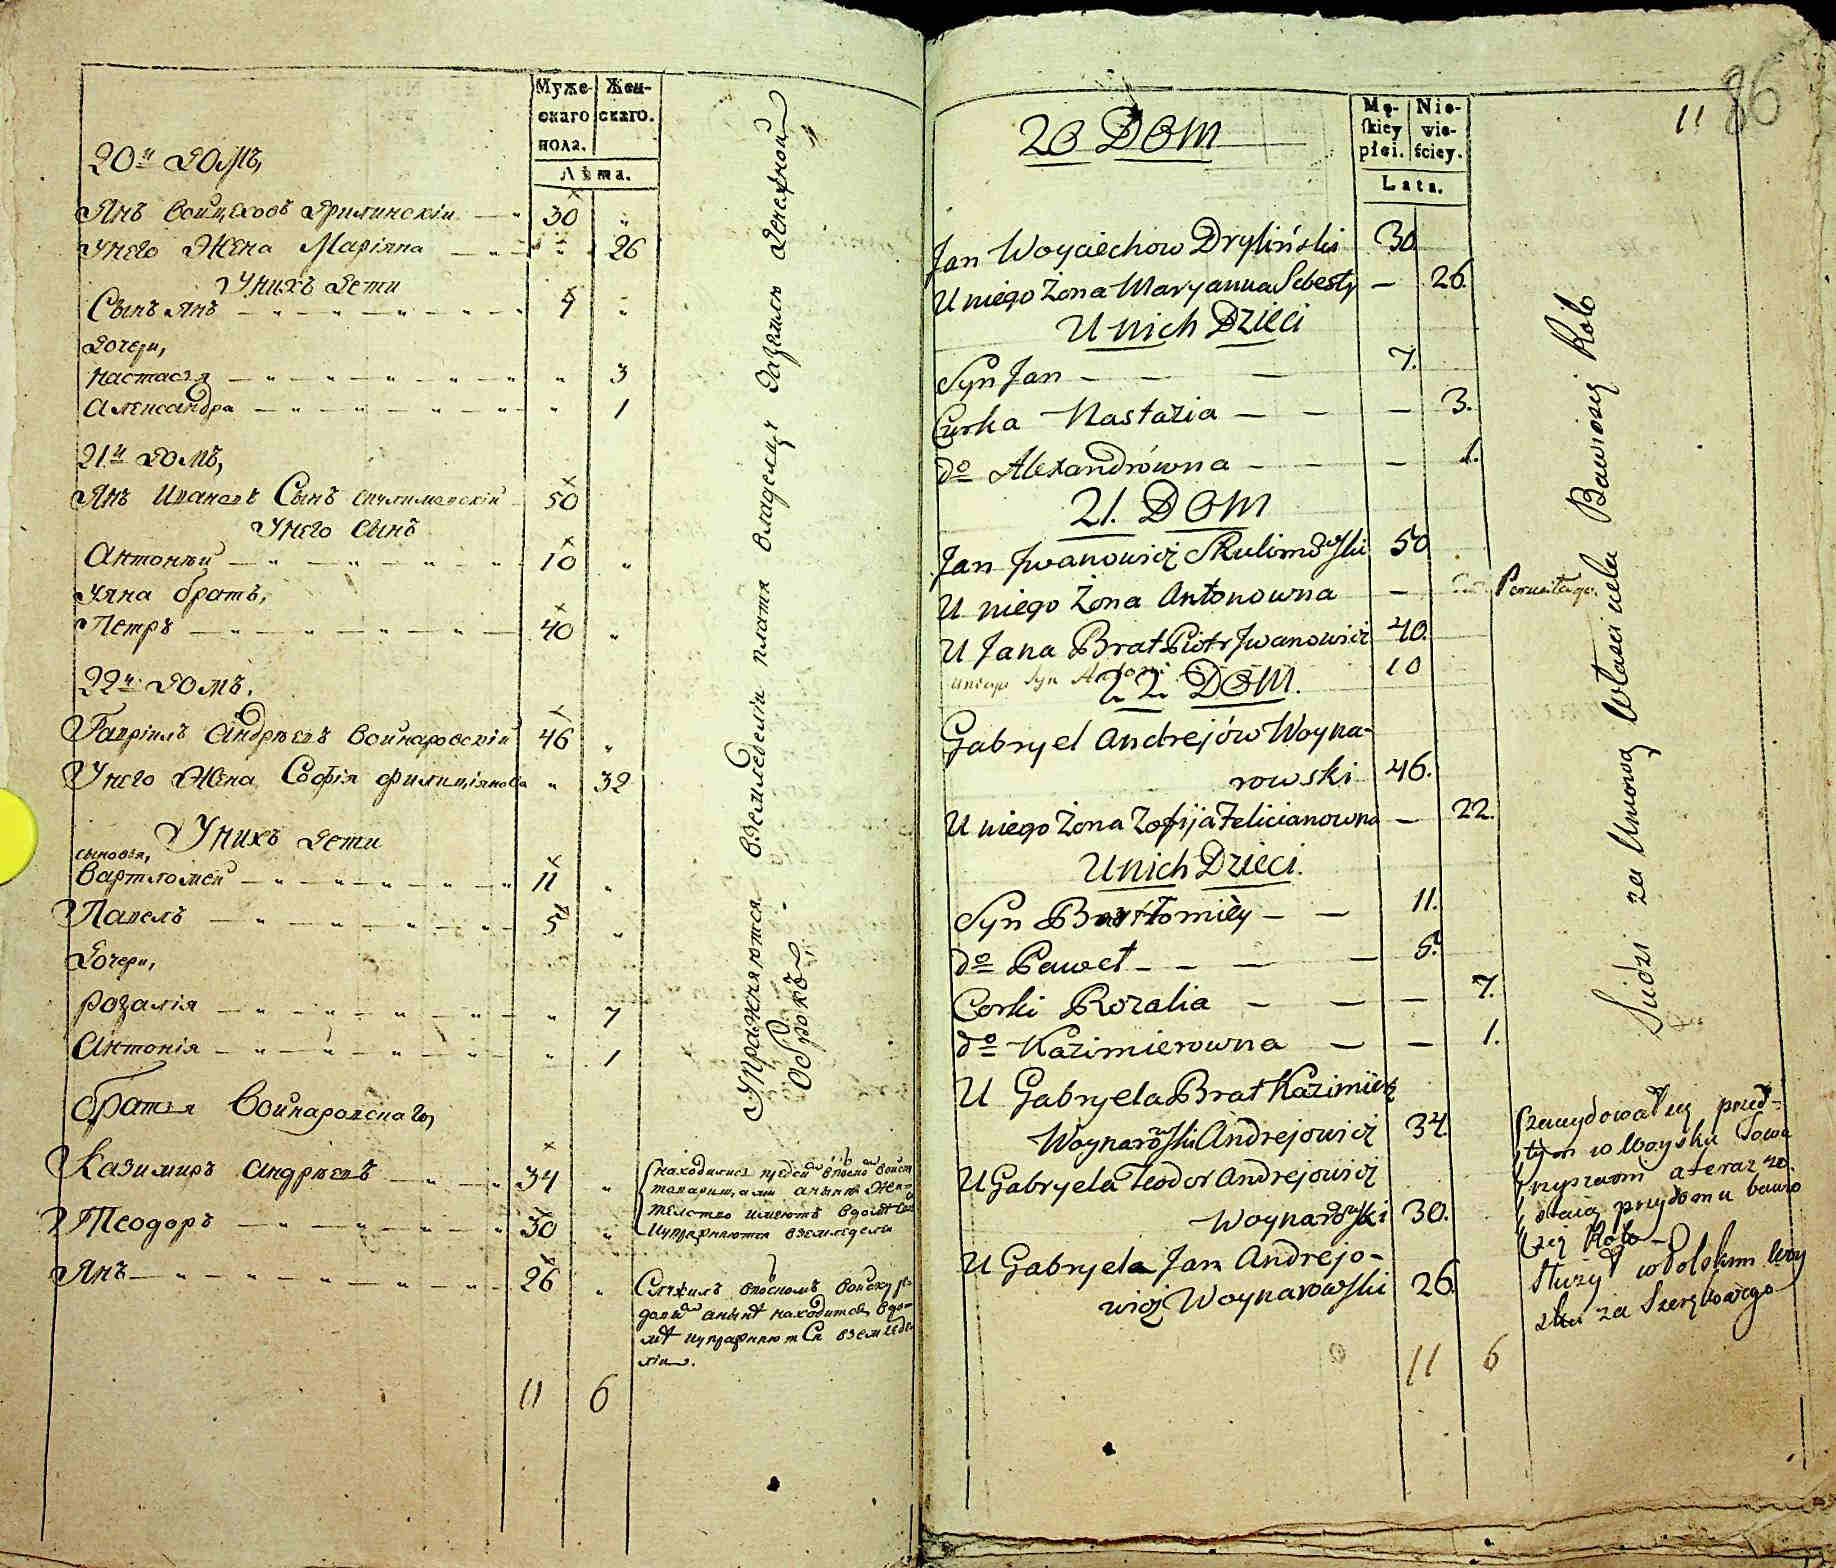 Муже-
скаго
пола.
Жен-
скаго.
Лѣта.
20й Домъ,
Янъ Войцеховъ Дрилинскій 30 "
Унего Жена Маріяна " 26
Унихъ Дети
Сынъ Янъ 7 "
Дочери,
Настасія " 3
Александра " 1
21й Домъ,
Янъ Ивановъ Сынъ Скулимовскій 50
Унего Сынъ
Антоній 10 "
Уяна братъ,
Петръ 40 "
22й Домъ.
Гавріилъ Андрѣевъ Войнаровскій 46 "
Унего Жена Софія Филиціянова " 32
Унихъ Дети
сыновья,
Вартломей 11 "
Павелъ 5 "
Дочери,
Розалія " 7
Антонія " 1
братья Войнаровскаго,
Казимиръ Андрѣевъ 34 "
Теодоръ 30 "
Янъ 26 "
11 6
Упражняются вземледелiи платя владелцу Денежной
Оброкъ
находились
товарищами анынѣ Жи-
тельство имеютъ вдомѣ
иупражняются вземледели
Служилъ впольскомъ войску
анынѣ находится вдо-
мѣ иупражняется вземледе-
ліи.
11 86
Mę-
skiey
płci.
Nie-
wie-
ściey.
Lata.
20 DOM
Jan Woyciechow Dryliński 30
U niego Żona Maryanna Sebesty — 26.
U nich Dzieci
Syn Jan — — — 7.
Curka Nastazia — — — 3.
do Alexandrówna — — — 1.
21. DOM
Jan Iwanowicz Skulimowski 50
U niego Żona Antonowna —
U Jana Brat Piotr Iwanowicz 40.
uniego Syn Antoni 10
22. DOM.
Gabryel Andrejów Woyna-
rowski 46.
U niego Żona Zofija Felicianowna — 22.
U nich Dzieci.
Syn Bartłomiey — — 11.
do Paweł — — — — 5.
Corki Rozalia — — — 7.
do Kazimierowna — — 1.
U Gabryela Brat Kazimierz
Woynarowski Andrejowicz 34.
U Gabryela Teodor Andrejowicz
Woynarowski 30.
U Gabryela Jan Andrejo-
wicz Woynarowski 26.
11 6
Siedzi za Umową Własciciela Bawiąsię Rolo
przed-
tym w Woysku Towa
rzyszami a teraz zo
staią przydomu bawio
czę Rolo
Służył w Polskim Woy
sku za Szeregowego